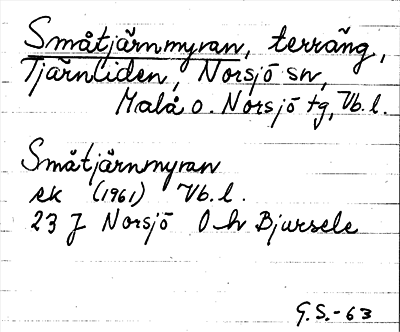 Småtjärnmyran, terräng,
Tjärnliden, Norsjö sn,
Malå o. Norsjö tg, Vb. l.
Småtjärnmyran
ek (1961) Vb. l.
23 J Norsjö 0 h Bjursele
G.S.-63